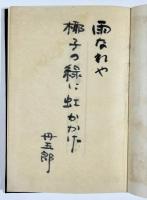 雨なれや
椰子の緑に虹かかげ
丹五郎